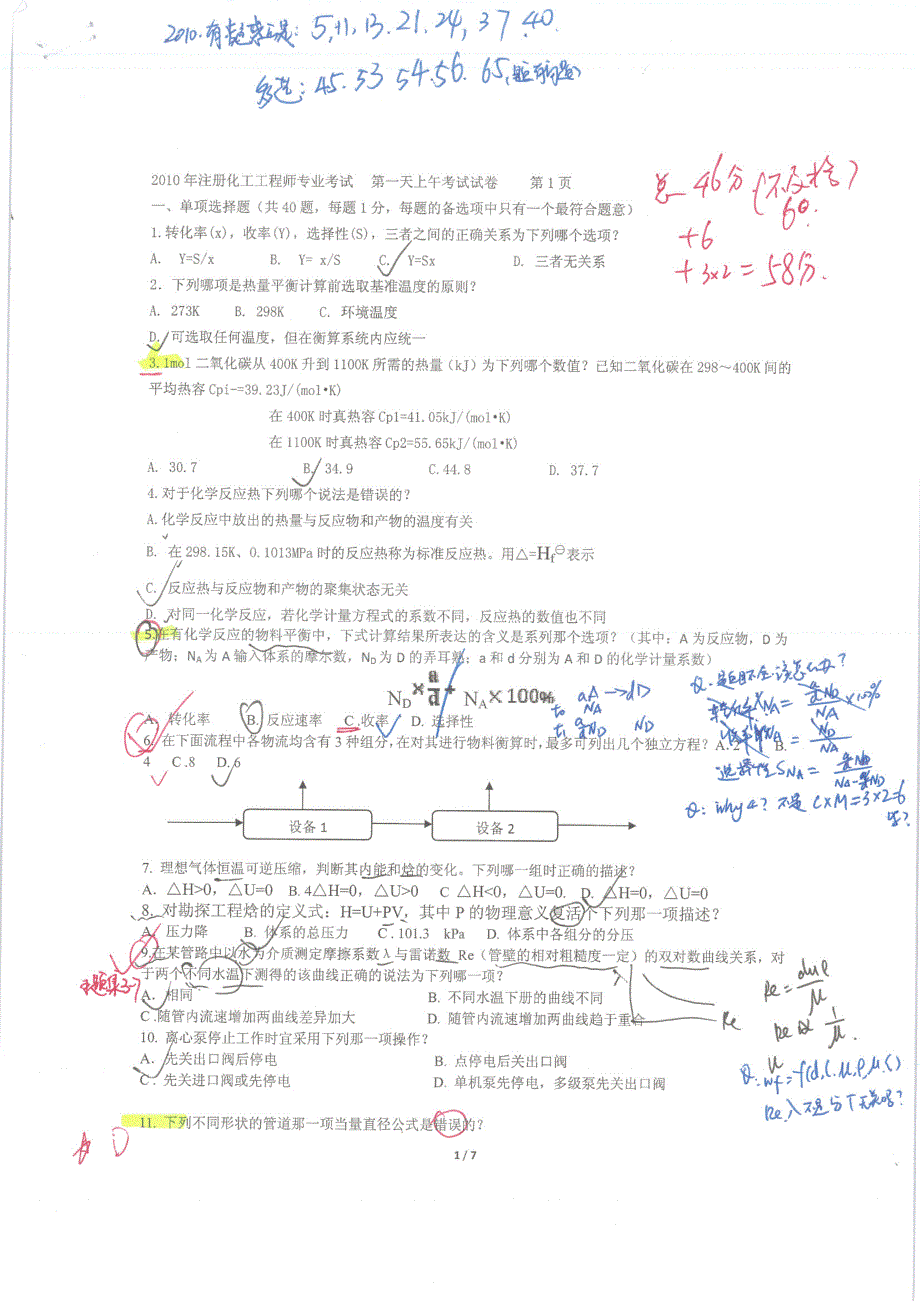 2010.有 5,11,13.21.24,37.40.
多选:45.53 54.56.65
总 46分
60.
+6
+3×2=58分.
2010年注册化工工程师专业考试 第一天上午考试试卷 第1页
一、单项选择题（共40题，每题1分，每题的备选项中只有一个最符合题意）
1.转化率(x)，收率(Y)，选择性(S)，三者之间的正确关系为下列哪个选项？
A. Y=S/x B. Y= x/S C. Y=Sx D. 三者无关系
2. 下列哪项是热量平衡计算前选取基准温度的原则？
A. 273K B. 298K C. 环境温度
D. 可选取任何温度，但在衡算系统内应统一
3.1mol二氧化碳从400K升到1100K所需的热量（kJ）为下列哪个数值？已知二氧化碳在298～400K间的
平均热容Cpi-=39.23J/(mol•K)
在400K时真热容Cp1=41.05kJ/(mol•K)
在1100K时真热容Cp2=55.65kJ/(mol•K)
A. 30.7 B. 34.9 C.44.8 D. 37.7
4.对于化学反应热下列哪个说法是错误的？
A.化学反应中放出的热量与反应物和产物的温度有关
B. 在298.15K、0.1013MPa时的反应热称为标准反应热。用△=Hf⊖表示
C. 反应热与反应物和产物的聚集状态无关
D. 对同一化学反应，若化学计量方程式的系数不同，反应热的数值也不同
5.在有化学反应的物料平衡中，下式计算结果所表达的含义是系列那个选项？（其中：A为反应物，D为
产物；NA为A输入体系的摩尔数，ND为D的弄耳熟；a和d分别为A和D的化学计量系数）
ND×a/d+ NA×100%
aA→dD
t0 NA
A. 转化率 B. 反应速率 C.收率 D. 选择性
6. 在下面流程中各物流均含有3种组分，在对其进行物料衡算时，最多可列出几个独立方程？A.2 B.
4 C.8 D.6
选择性SNA=
Q: why 4? 不是 C×M=3×2=6
设备1 设备2
7. 理想气体恒温可逆压缩，判断其内能和焓的变化。下列哪一组时正确的描述？
A. △H>0，△U=0 B. 4△H=0，△U>0 C △H<0，△U=0. D. △H=0，△U=0
8. 对勘探工程焓的定义式：H=U+PV，其中P的物理意义复活个下列那一项描述？
A. 压力降 B. 体系的总压力 C.101.3 kPa D. 体系中各组分的分压
9.在某管路中以水为介质测定摩擦系数λ与雷诺数 Re（管壁的相对粗糙度一定）的双对数曲线关系，对
于两个不同水温下测得的该曲线正确的说法为下列哪一项？
A. 相同 B. 不同水温下册的曲线不同
C.随管内流速增加两曲线差异加大 D. 随管内流速增加两曲线趋于重合
Re
Re=duρ/μ
Re∝1/μ.
10. 离心泵停止工作时宜采用下列那一项操作？
A. 先关出口阀后停电 B. 点停电后关出口阀
C. 先关进口阀或先停电 D. 单机泵先停电，多级泵先关出口阀
11. 下列不同形状的管道那一项当量直径公式是错误的？
D
1 / 7